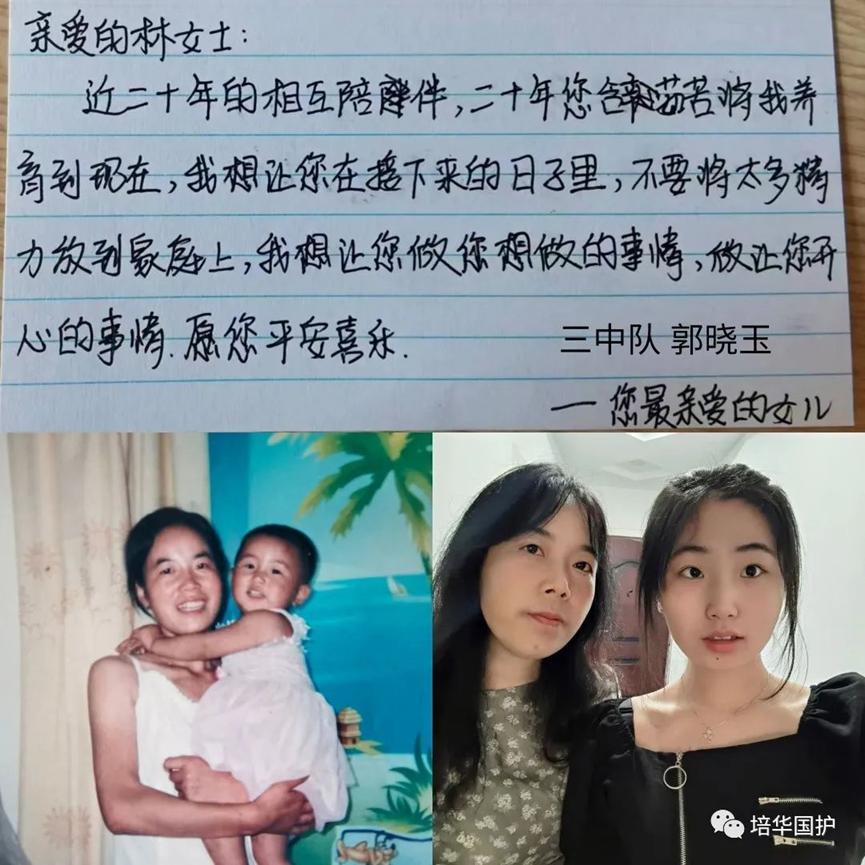 亲爱的林女士：
近二十年的相互陪伴，二十年您含辛茹苦将我养
育到现在，我想让您在接下来的日子里，不要将太多精
力放到家庭上，我想让您做您想做的事情，做让您开
心的事情.愿您平安喜乐.
三中队 郭晓玉
一 您最亲爱的女儿
培华国护